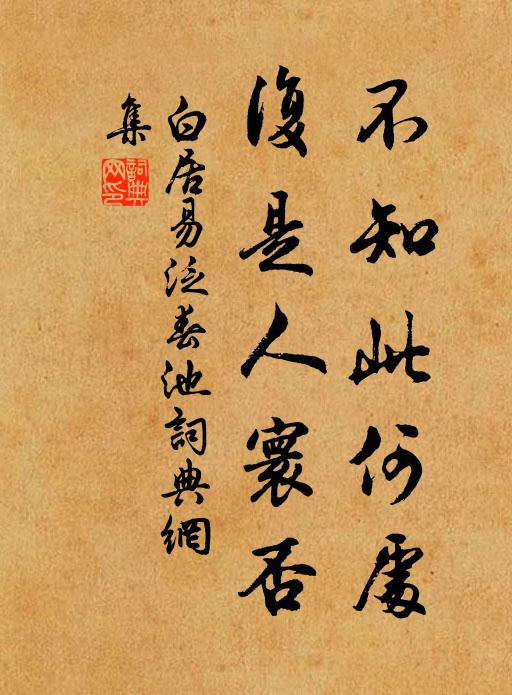 不知此何處
復是人寰否
白居易泛春池詞典網
集
詞典
网印